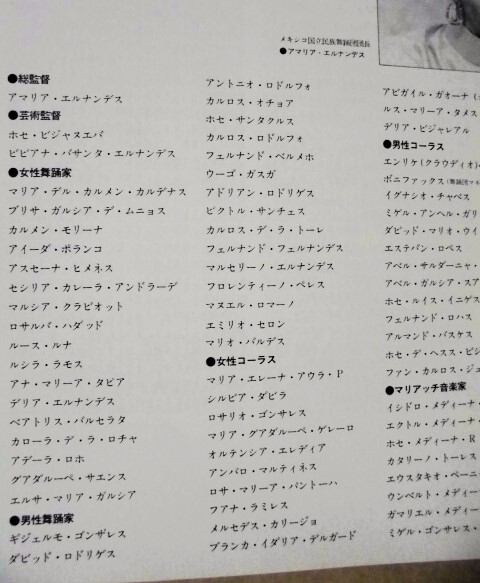 メキシコ国立民族舞踊団団長
●アマリア・エルナンデス
●総監督
アマリア・エルナンデス
●芸術監督
ホセ・ビジャヌエバ
ビビアナ・バサンタ・エルナンデス
●女性舞踊家
マリア・デル・カルメン・カルデナス
ブリサ・ガルシア・デ・ムニョス
カルメン・モリーナ
アイーダ・ポランコ
アスセーナ・ヒメネス
セシリア・カレーラ・アンドラーデ
マルシア・クラビオット
ロサルバ・ハダッド
ルース・ルナ
ルシラ・ラモス
アナ・マリーア・タピア
デリア・エルナンデス
ベアトリス・バルセラタ
カローラ・デ・ラ・ロチャ
アデーラ・ロホ
グアダルーペ・サエンス
エルサ・マリア・ガルシア
●男性舞踊家
ギジェルモ・ゴンザレス
ダビッド・ロドリゲス
アントニオ・ロドルフォ
カルロス・オチョア
ホセ・サンタクルス
カルロス・ロドルフォ
フェルナンド・ベルメホ
ウーゴ・ガスガ
アドリアン・ロドリゲス
ビクトル・サンチェス
カルロス・デ・ラ・トーレ
フェルナンド・フェルナンデス
マルセリーノ・エルナンデス
フロレンティーノ・ペレス
マヌエル・ロマーノ
エミリオ・セロン
マリオ・バルデス
●女性コーラス
マリア・エレーナ・アウラ・P
シルビア・ダビラ
ロサリオ・ゴンサレス
マリア・グアダルーペ・ゲレーロ
オルテンシア・エレディア
アンパロ・マルティネス
ロサ・マリア・パントーハ
フアナ・ラミレス
メルセデス・カリージョ
ブランカ・イダリア・デルガード
アビガイル・ガオーナ
ルス・マリーア・タメス
デリア・ビジャレアル
●男性コーラス
エンリケ(クラウディオ)・
ボニファックス
イグナシオ・チャベス
ミゲル・アンヘル・ガリ
ダビッド・マリオ・ウイ
エステバン・ロペス
アベル・サルダーニャ・
アベル・ガルシア・スア
ホセ・ルイス・イニゲス
フェルナンド・ロハス
アルマンド・バスケス
ホセ・デ・ヘスス・ビジ
ファン・カルロス・ジュ
●マリアッチ音楽家
イシドロ・メディーナ・
エクトル・メディーナ・
ホセ・メディーナ・R
カタリーノ・トーレス
エウスタキオ・ペーニ
ウンベルト・メディー
ガマリエル・メディー
ミゲル・ゴンサレス・